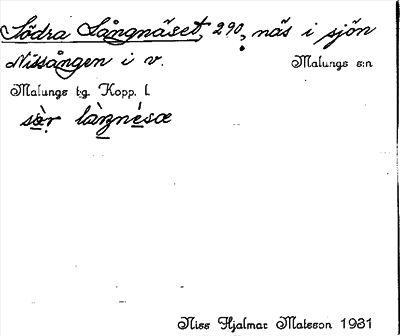 Södra Långnäset, 290, näs i sjön
Nissången i v. Malungs s:n
Malungs tg. Kopp. l.
sær làŋnésæ
Niss Hjalmar Matsson 1931